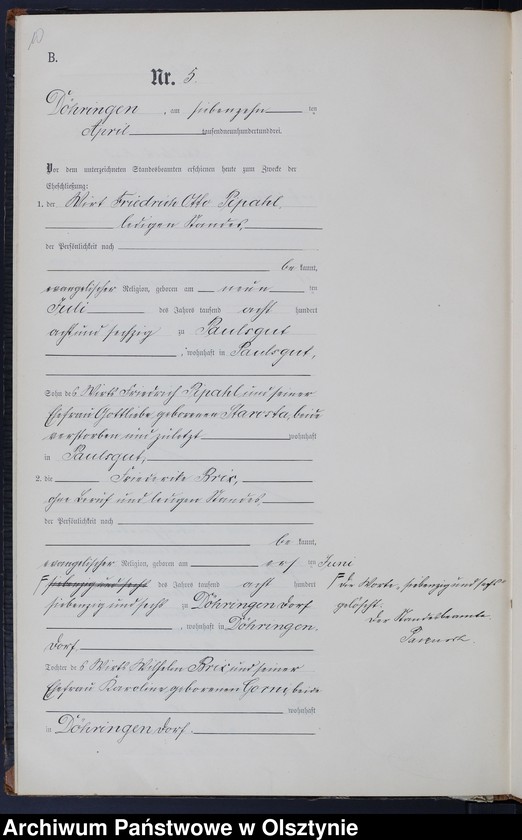 B.
Nr. 5
Döhringen, am siebenzehn ten
April tausendneunhundertunddrei.
Vor dem unterzeichneten Standesbeamten erschienen heute zum Zwecke der
Eheschließung:
1. der Wirt Friedrich Otto Pepahl,
ledigen Standes,
der Persönlichkeit nach
bekannt,
evangelischer Religion, geboren am neun ten
Juli des Jahres tausend acht hundert
acht und sechzig zu Paulsgut
, wohnhaft in Paulsgut,
Sohn des Wirts Friedrich Pepahl und seiner
Ehefrau Gottliebe geborenen Starosta, beide
verstorben und zuletzt wohnhaft
in Paulsgut,
2. die Friederike Brix,
ohne Beruf und ledigen Standes,
der Persönlichkeit nach
bekannt,
evangelischer Religion, geboren am elf ten Juni
siebenzig und sechs des Jahres tausend acht hundert
siebenzig und sechs zu Döhringen Dorf
, wohnhaft in Döhringen
Dorf
Tochter des Wirts Wilhelm Brix und seiner
Ehefrau Karoline geborenen Gorny, beide
wohnhaft
in Döhringen Dorf.
die Worte „siebenzig und sechs“
gelöscht.
Der Standesbeamte.
Archiwum Państwowe w Olsztynie